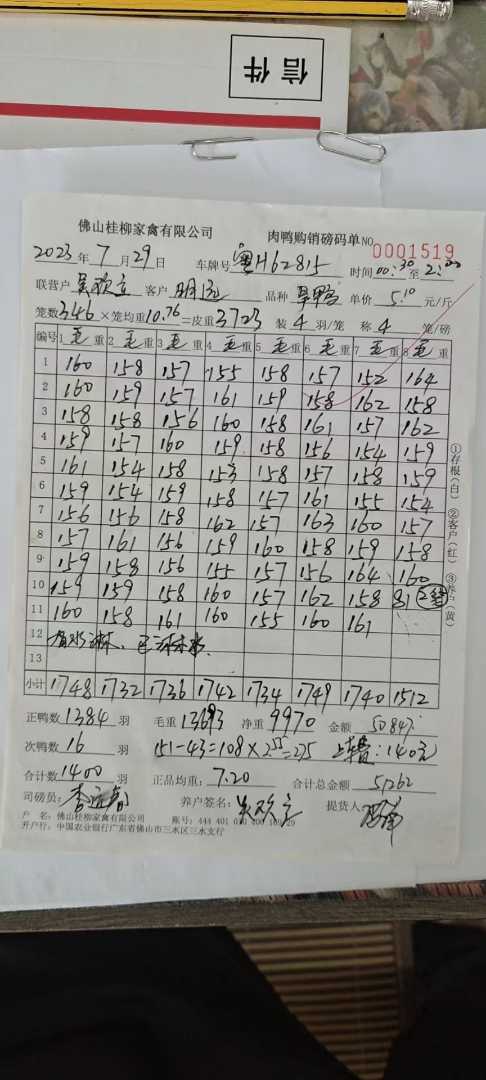 信件
佛山桂柳家禽有限公司 肉鸭购销磅码单 NO 0001519
2023年7月29日 车牌号 粤H62815 时间 00:30 至 2:00
联营户 吴欢立 客户 明 品种 旱鸭 单价 5.10 元/斤
笼数 346 ×笼均重 10.76 =皮重 3723 装 4 羽/笼 称 4 笼/磅
编号 1 毛重 2 毛重 3 毛重 4 毛重 5 毛重 6 毛重 7 毛重 8 毛重
1 160 158 157 155 158 157 152 164
2 160 159 157 161 159 158 162 158
3 158 158 156 160 158 161 157 162
4 159 157 160 159 158 156 154 159
5 161 154 158 153 158 157 158 159
6 159 154 159 158 157 161 155 154
7 156 156 158 162 157 163 160 157
8 157 161 156 159 160 158 159 158
9 159 158 156 155 157 156 164 160
10 159 159 158 160 157 162 158 81
11 160 158 161 160 155 160 161
12 有水淋、已淋水
13
小计 1748 1732 1736 1742 1734 1749 1740 1512
正鸭数 1384 羽 毛重 13693 净重 9970 金额 50847
次鸭数 16 羽 151-43=108×2.55=275 上车费:140元
合计数 1400 羽 正品均重: 7.20 合计总金额 51262
司磅员: 养户签名: 吴欢立 提货人
户 名: 佛山桂柳家禽有限公司 账号: 444 401 010 400 169 29
开户行: 中国农业银行广东省佛山市三水区三水支行
①存根(白) ②客户(红) ③养户(黄)